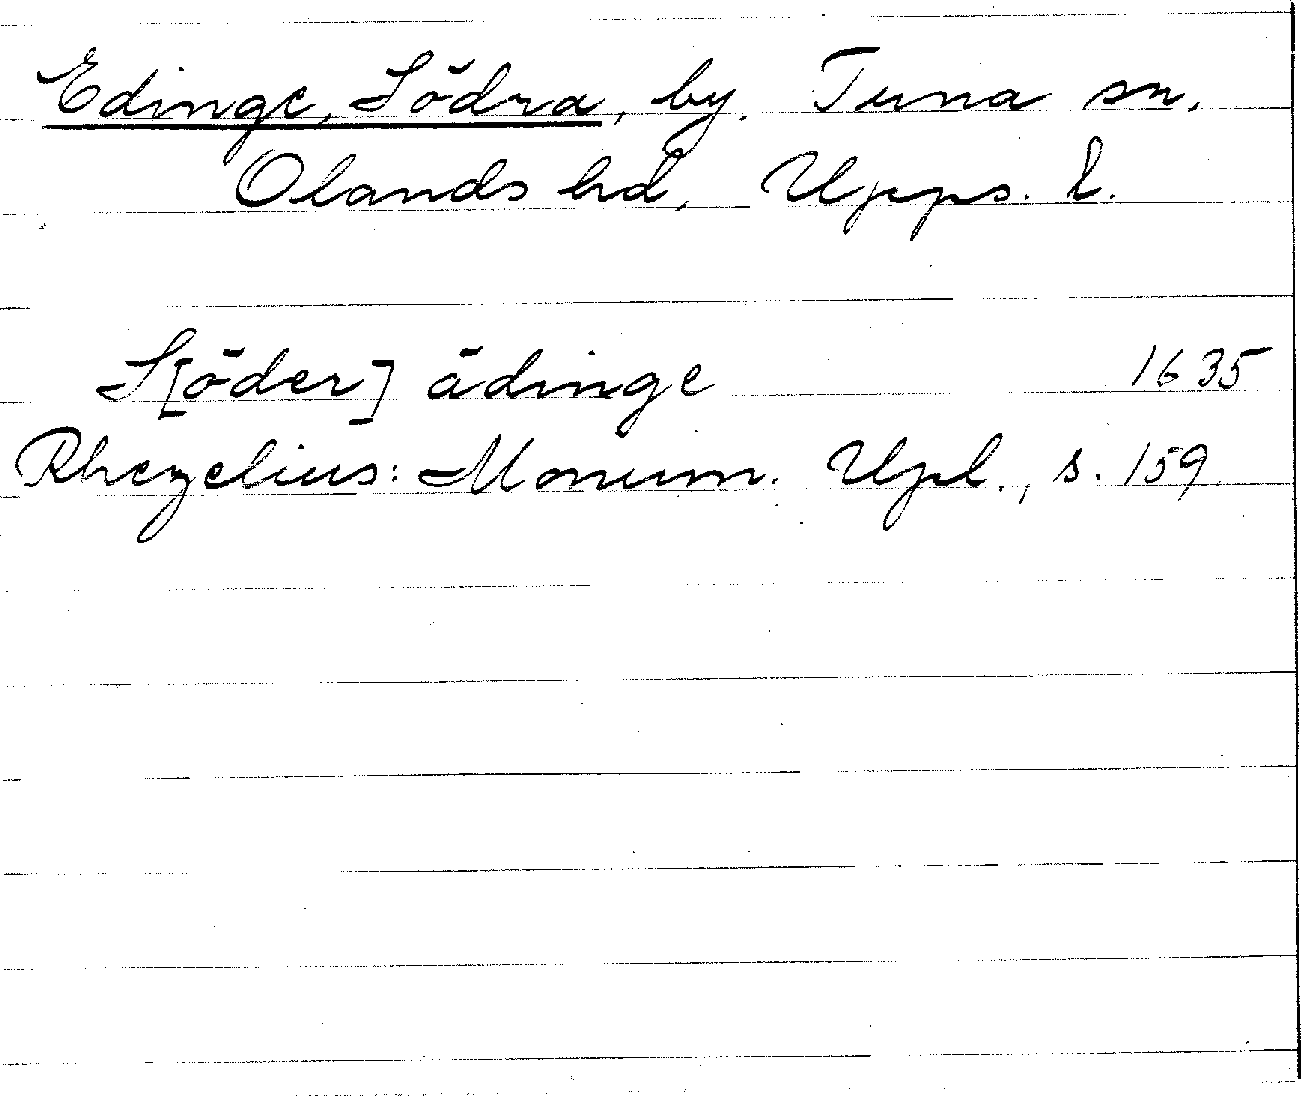 Edinge, Södra, by. Tuna sn.
Olands hd, Upps. l.
S[öder] ädinge 1635
Rhezelius: Monum. Upl., s. 159